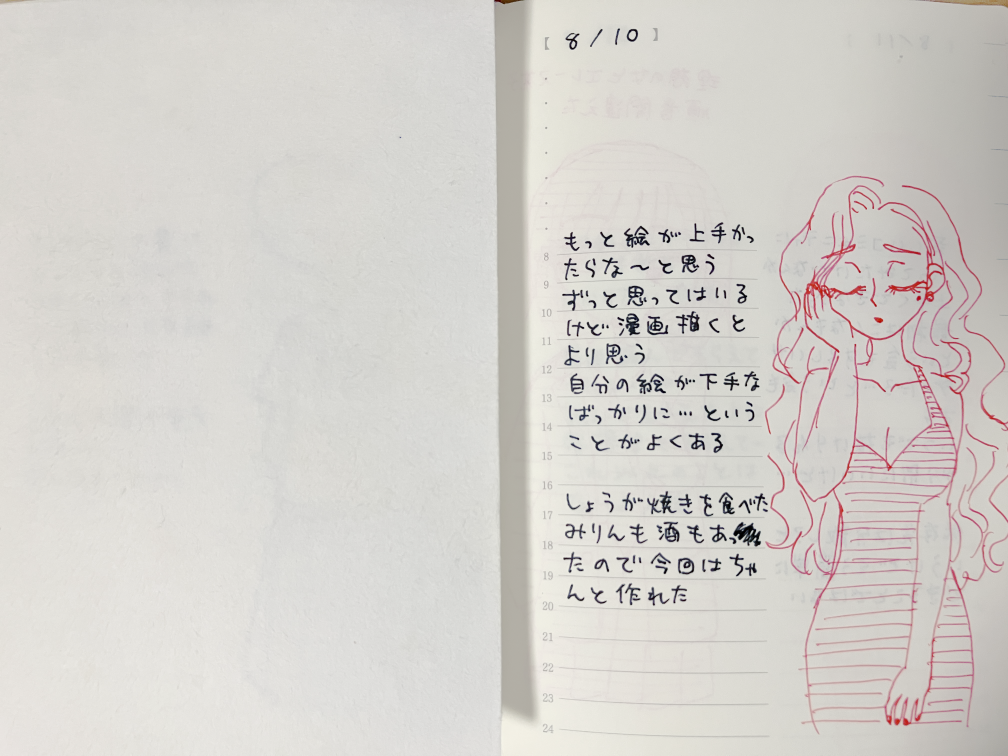 【 8/10 】
もっと絵が上手かっ
たらな〜と思う
ずっと思ってはいる
けど漫画描くと
より思う
自分の絵が下手な
ばっかりに…という
ことがよくある
しょうが焼きを食べた
みりんも酒もあっ
たので今回はちゃ
んと作れた
8
9
10
11
12
13
14
15
16
17
18
19
20
21
22
23
24